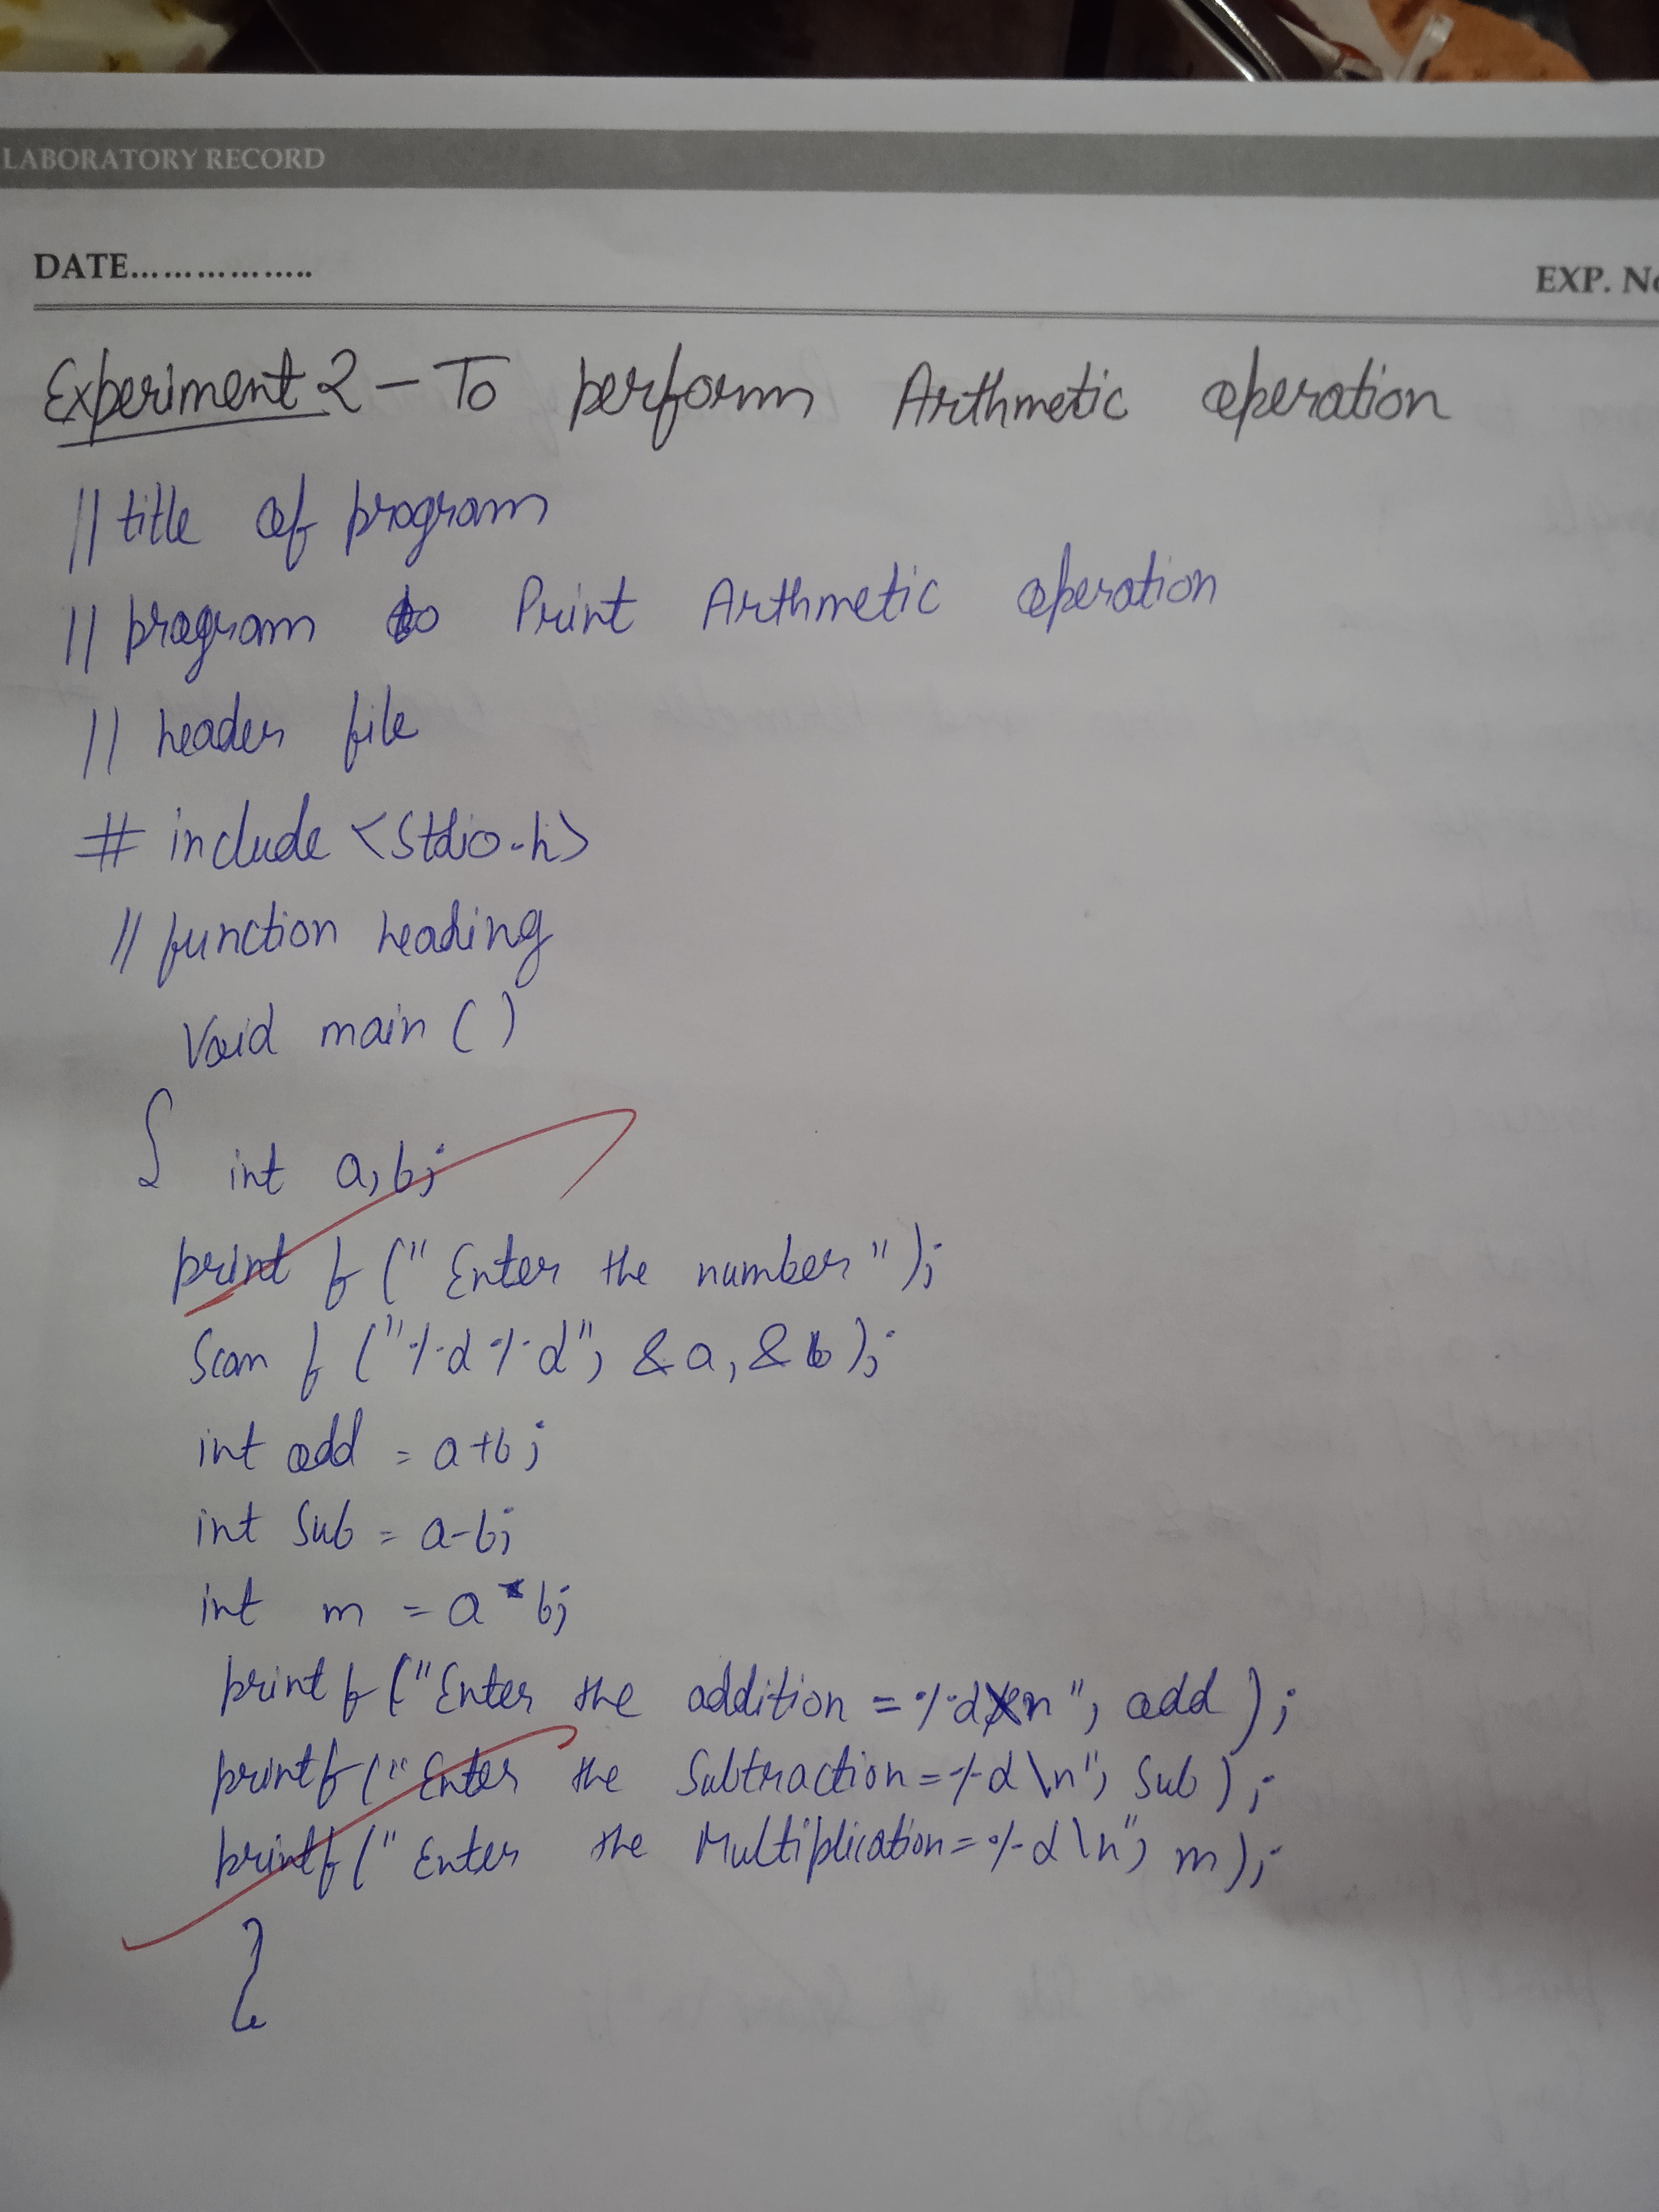 LABORATORY RECORD
DATE.................. EXP. No
Experiment 2 - To perform Arthmetic operation
// title of program
// program to Print Arthmetic operation
// header file
# include <Stdio.h>
// function heading
Void main ( )
{ int a, b;
print f (" Enter the number ");
Scan f ("%d %d", &a, &b);
int add = a+b;
int Sub = a-b;
int m = a*b;
print f ("Enter the addition = %d\n", add );
printf ("Enter the Subtraction = %d \n", Sub );
printf (" Enter the Multiplication = %d \n", m);
}